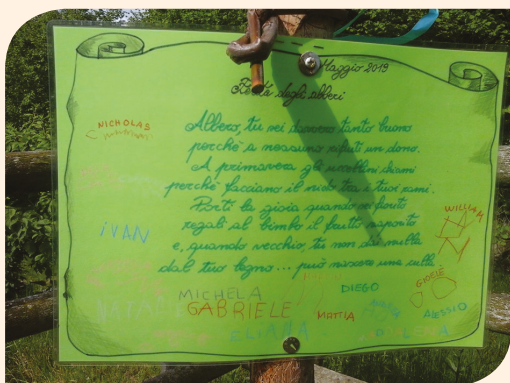 Maggio 2019
Festa degli alberi
NICHOLAS
Albero, tu sei davvero tanto buono
perchè a nessuno rifiuti un dono.
A primavera gli uccellini chiami
perchè facciano il nido tra i tuoi rami.
Porti la gioia quando sei fiorito
regali al bimbo il frutto saporito
e, quando vecchio, tu non dai nulla
dal tuo legno... può nascere una culla.
WILLIAM
iVAN
GIOELE
MICHELA
DIEGO
GABRIELE
MATTIA
ALESSIO
ELIANA